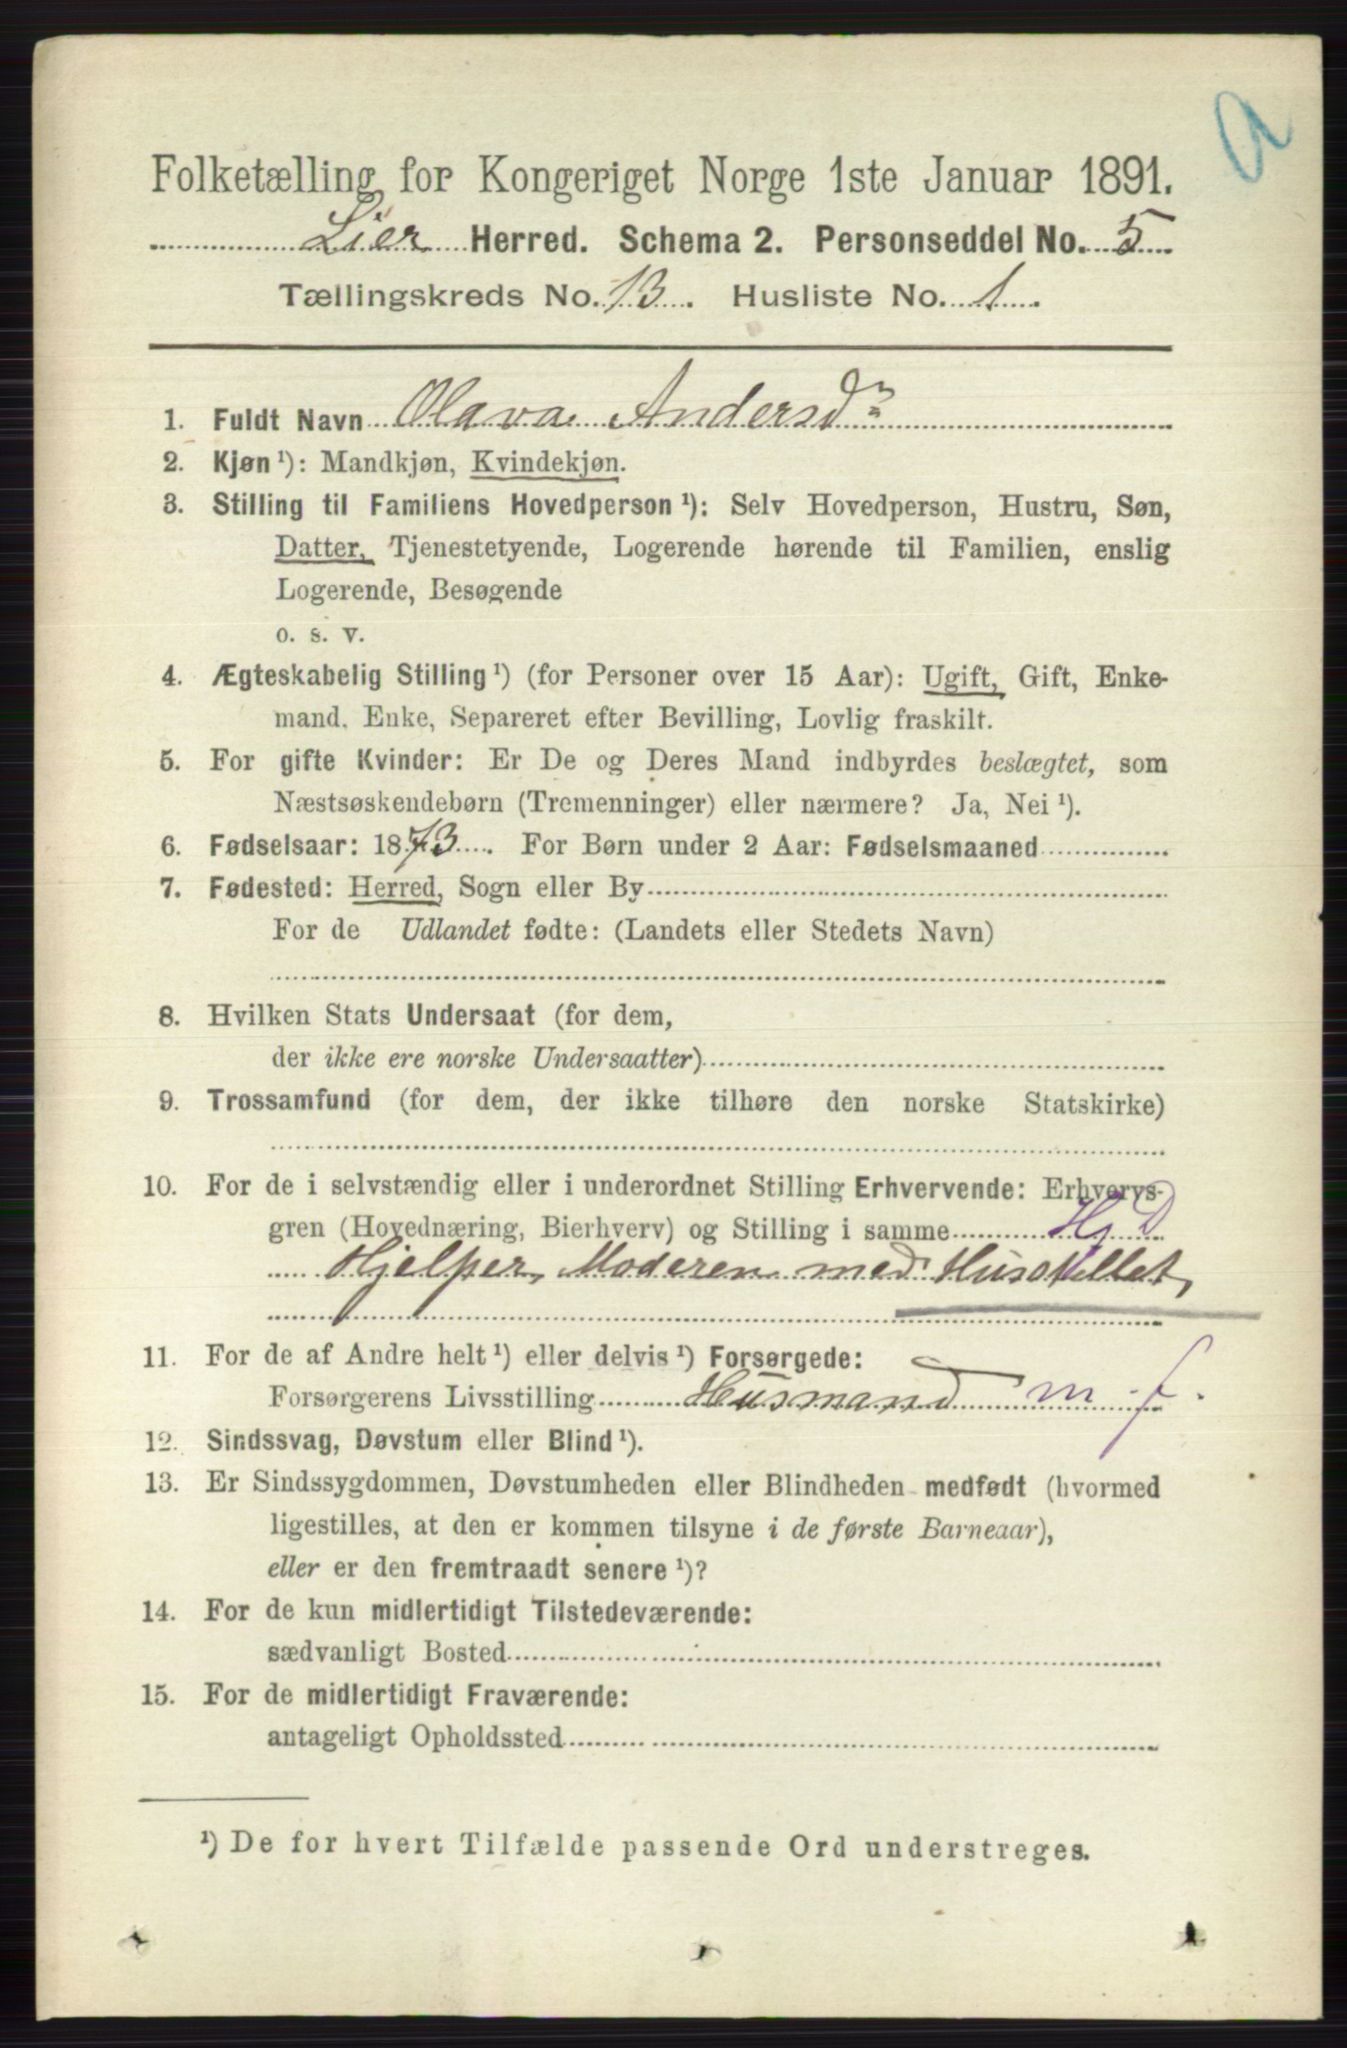 a
Folketælling for Kongeriget Norge 1ste Januar 1891.
Lier Herred. Schema 2. Personseddel No. 5
Tællingskreds No. 13. Husliste No. 1.
1. Fuldt Navn Olava Andersdr
2. Kjøn ¹): Mandkjøn, Kvindekjøn.
3. Stilling til Familiens Hovedperson ¹): Selv Hovedperson, Hustru, Søn,
Datter, Tjenestetyende, Logerende hørende til Familien, enslig
Logerende, Besøgende
o. s. v.
4. Ægteskabelig Stilling ¹) (for Personer over 15 Aar): Ugift, Gift, Enke-
mand, Enke, Separeret efter Bevilling, Lovlig fraskilt.
5. For gifte Kvinder: Er De og Deres Mand indbyrdes beslægtet, som
Næstsøskendebørn (Tremenninger) eller nærmere? Ja, Nei ¹).
6. Fødselsaar: 1873. For Børn under 2 Aar: Fødselsmaaned
7. Fødested: Herred, Sogn eller By
For de Udlandet fødte: (Landets eller Stedets Navn)
8. Hvilken Stats Undersaat (for dem,
der ikke ere norske Undersaatter)
9. Trossamfund (for dem, der ikke tilhøre den norske Statskirke)
10. For de i selvstændig eller i underordnet Stilling Erhvervende: Erhvervs-
gren (Hovednæring, Bierhverv) og Stilling i samme Hj D
Hjelper Moderen med Husstellet,
11. For de af Andre helt ¹) eller delvis ¹) Forsørgede:
Forsørgerens Livsstilling Husmand m f.
12. Sindssvag, Døvstum eller Blind ¹).
13. Er Sindssygdommen, Døvstumheden eller Blindheden medfødt (hvormed
ligestilles, at den er kommen tilsyne i de første Barneaar),
eller er den fremtraadt senere ¹)?
14. For de kun midlertidigt Tilstedeværende:
sædvanligt Bosted
15. For de midlertidigt Fraværende:
antageligt Opholdssted
¹) De for hvert Tilfælde passende Ord understreges.